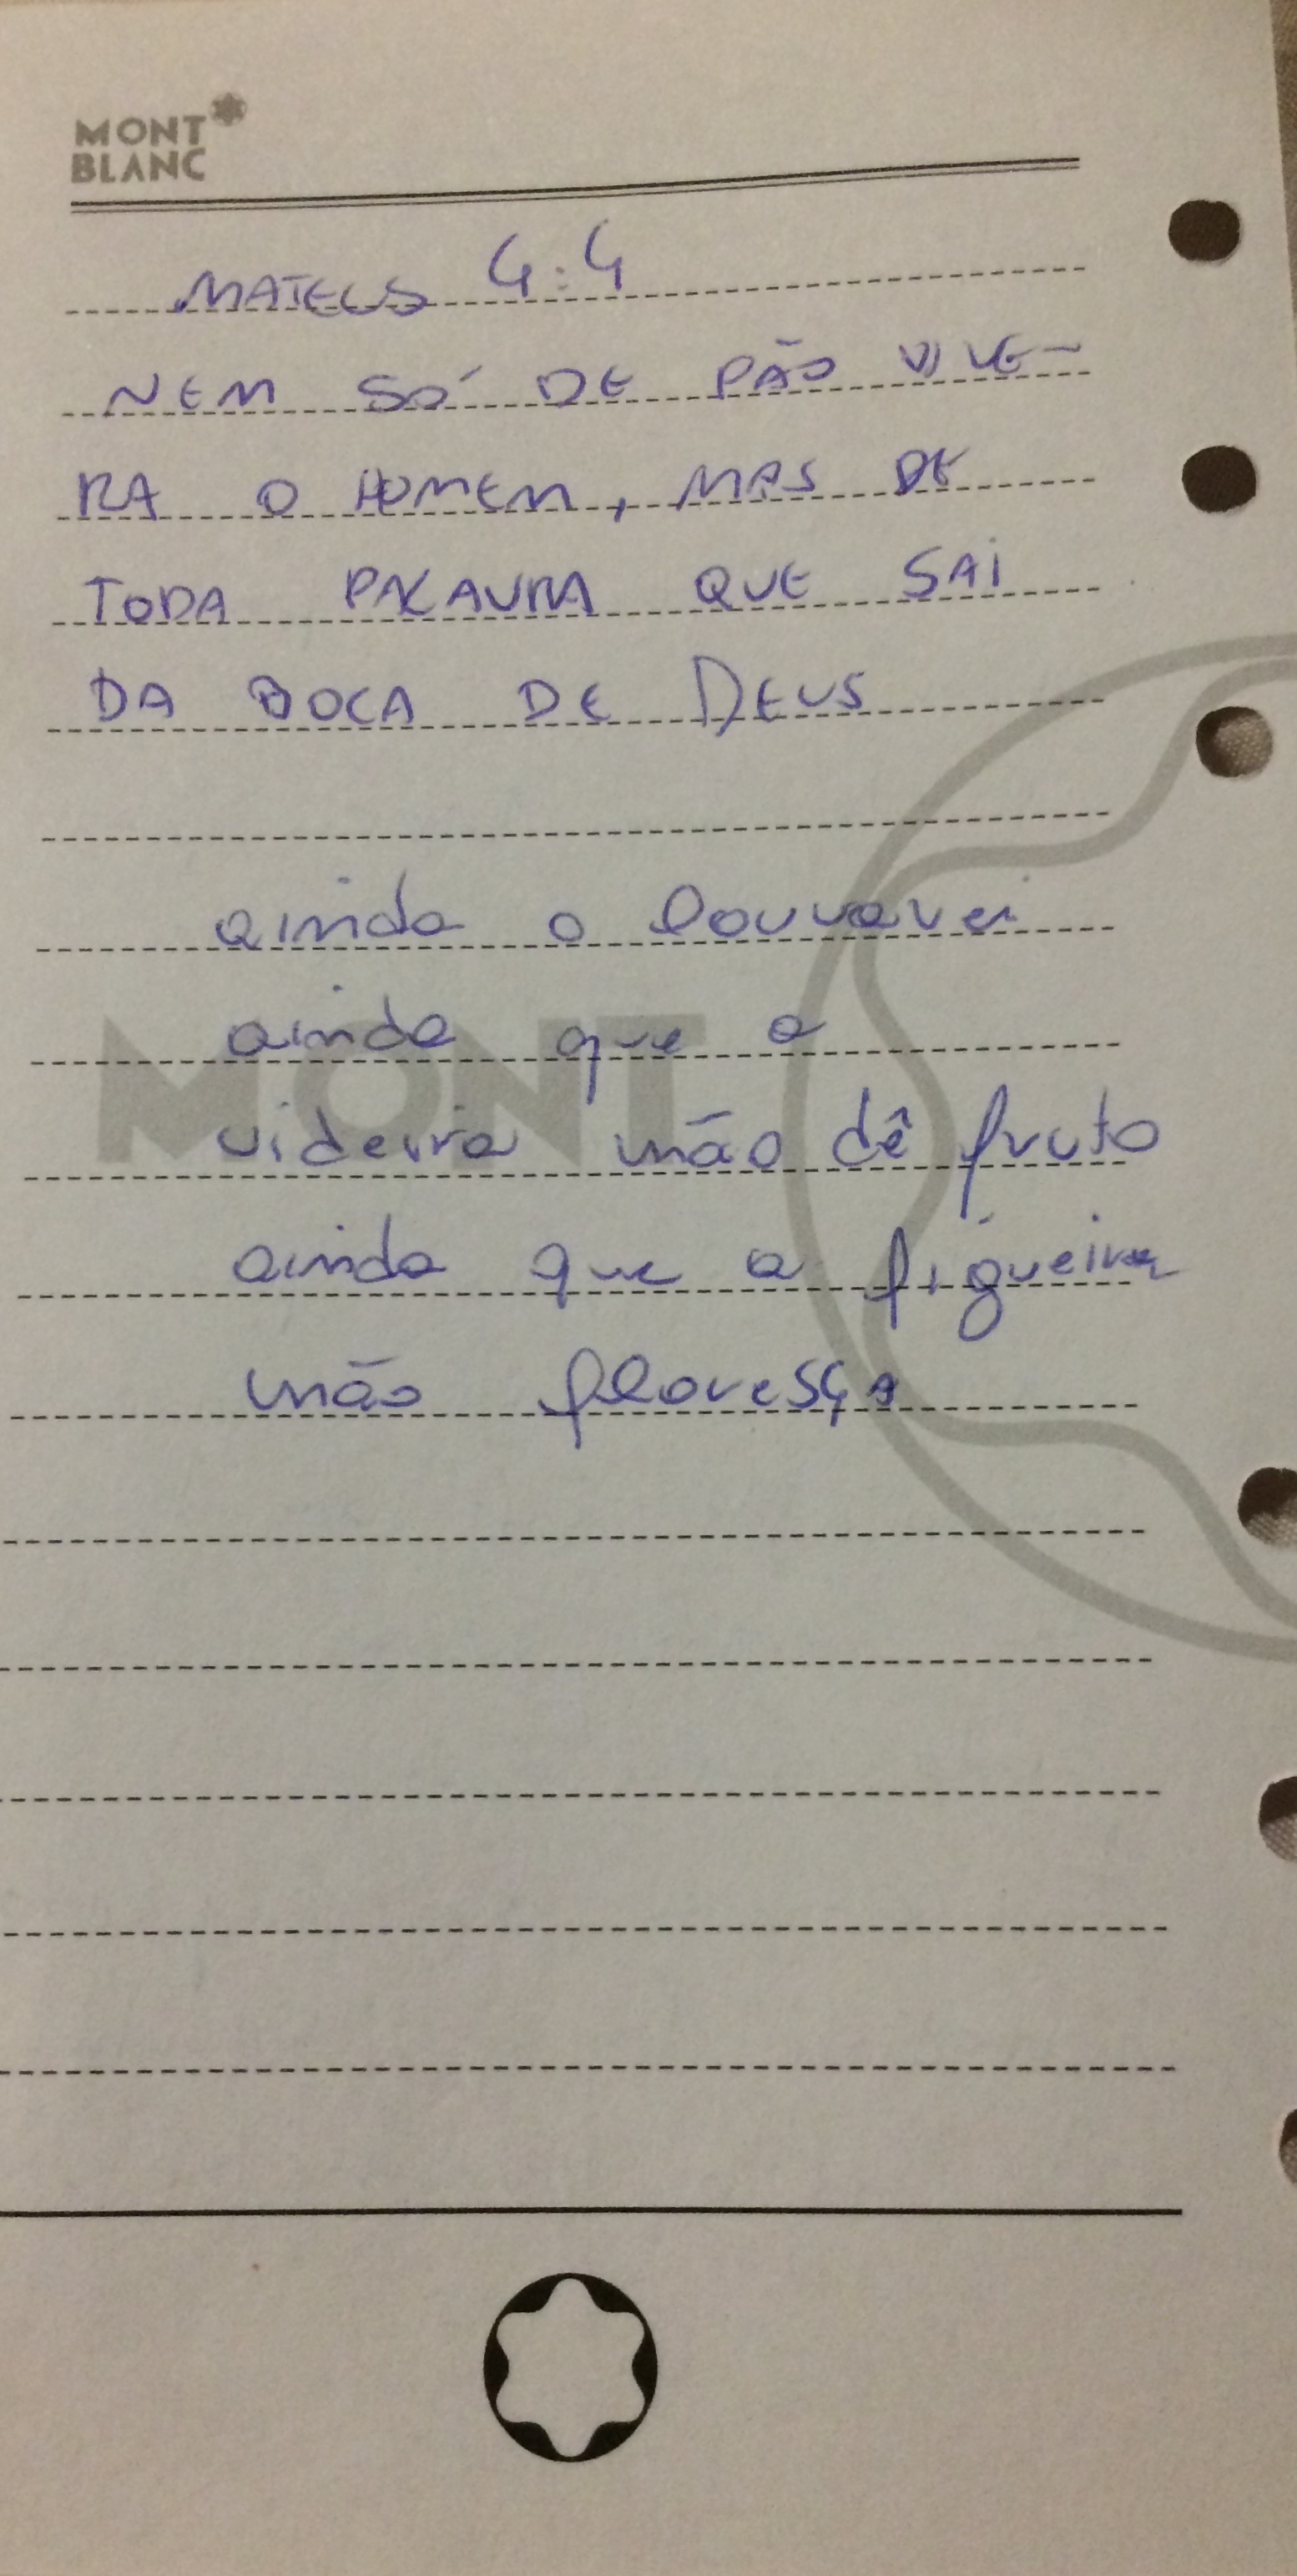 MONT
BLANC
MATEUS 4:4
NEM SÓ DE PÃO VIVE-
RA O HOMEM, MAS DE
TODA PALAVRA QUE SAI
DA BOCA DE DEUS
ainda o louvarei
ainda que a
MONT
videira não dê fruto
ainda que a figueira
não floresça